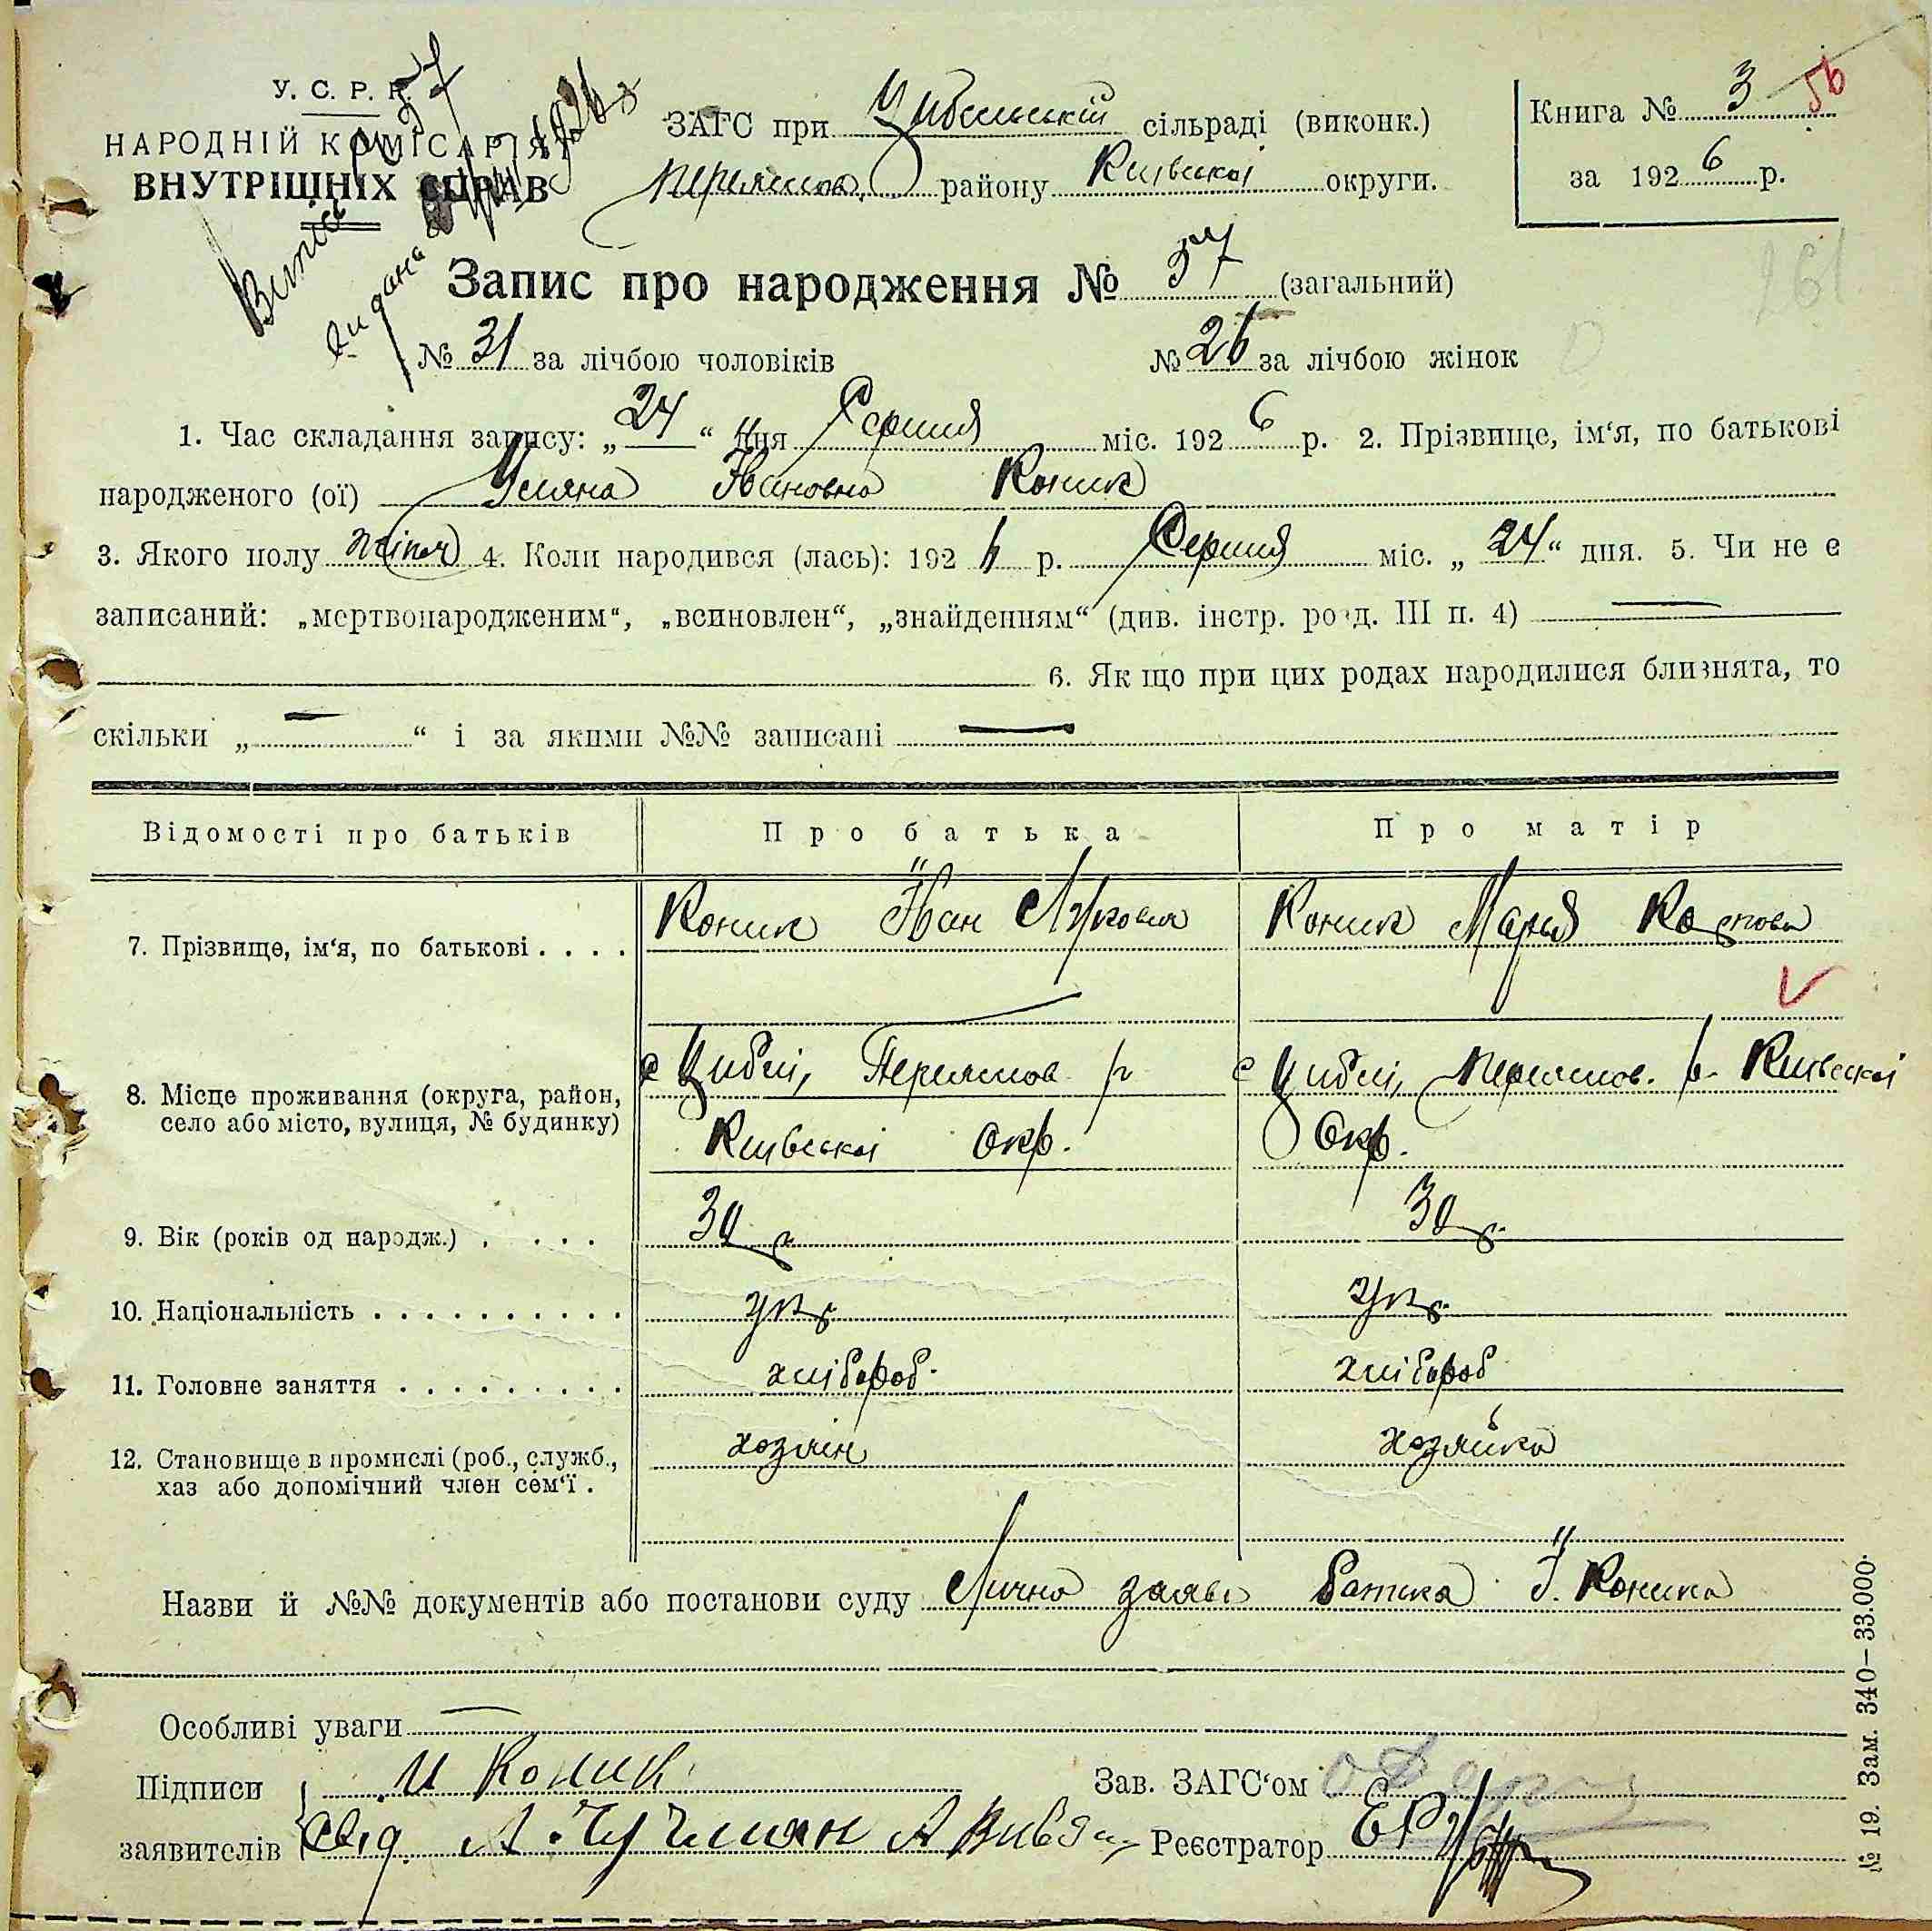 У. С. Р. Р.
НАРОДНІЙ КОМІСАРІЯТ
ВНУТРІШНІХ СПРАВ
ЗАГС при Цибльській сільраді (виконк.)
Переяслов. району Київської округи.
Книга № 3 56
за 1926 р.
261
Запис про народження № 57 (загальний)
№ 31 за лічбою чоловіків № 26 за лічбою жінок
1. Час складання запису: „24“ дня Серпня міс. 1926 р. 2. Прізвище, ім‘я, по батькові
народженого (ої) Уляна Івановна Коник
3. Якого полу жіноч 4. Коли народився (лась): 1926 р. Серпня міс. „24“ дня. 5. Чи не є
записаний: „мертвонародженим“, „всиновлен“, „знайденням“ (див. інстр. розд. III п. 4) —
6. Якщо при цих родах народилися близнята, то
скільки „—“ і за якими №№ записані —
Відомості про батьків Про батька Про матір
7. Прізвище, ім‘я, по батькові . . . . Коник Іван Коник Марья
8. Місце проживання (округа, район, село або місто, вулиця, № будинку) с Циблі, Переяслов р с Циблі, Переяслов. р. Київської
Київської Окр. Окр.
9. Вік (років од народж.) . . . . 30 р 30 р.
10. Національність . . . . . . . . . . укр укр.
11. Головне заняття . . . . . . . . . хлібороб. хлібороб
12. Становище в промислі (роб., служб., хаз або допомічний член сем‘ї . хозяін хозяйка
Назви й №№ документів або постанови суду Лично заява батька І. Коника
Особливі уваги —
Підписи заявителів И Коник
Зав. ЗАГС‘ом
Свід. А.
Реєстратор
№ 19. Зам. 340–33.000.